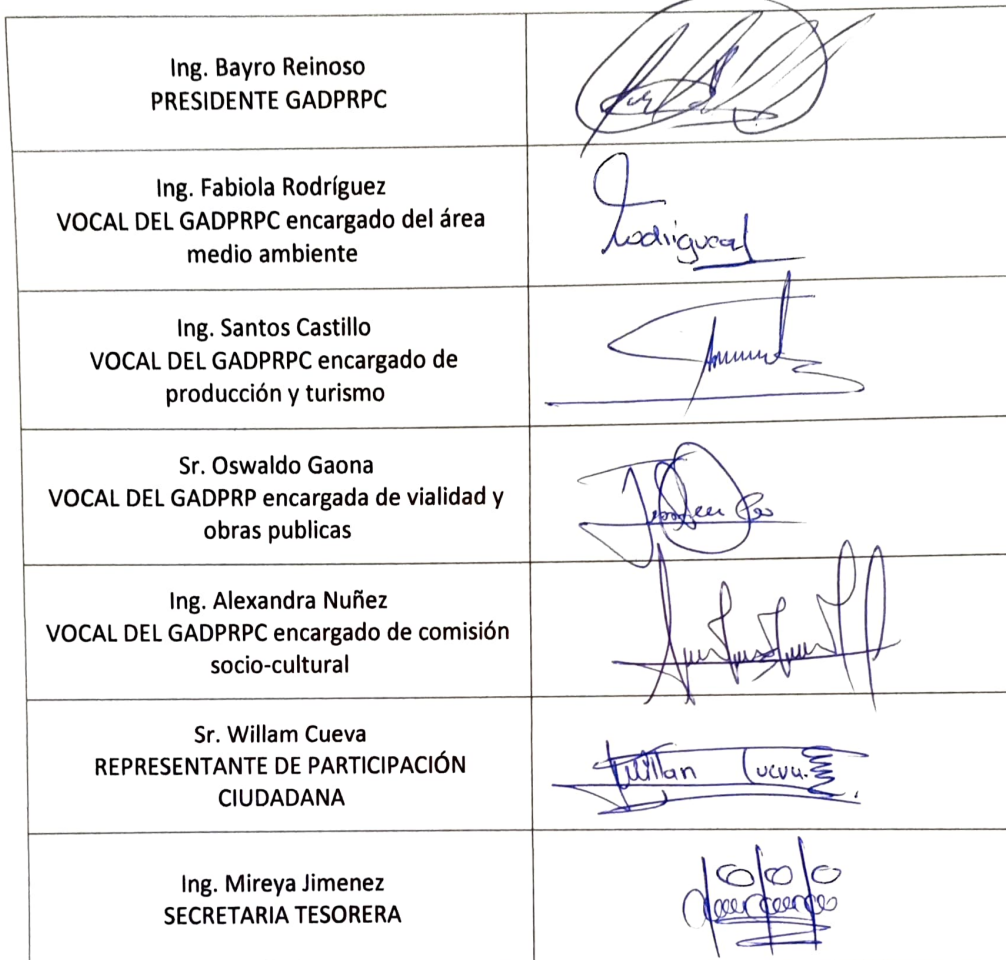 Ing. Bayro Reinoso
PRESIDENTE GADPRPC
Ing. Fabiola Rodríguez
VOCAL DEL GADPRPC encargado del área
medio ambiente
Rodriguez
Ing. Santos Castillo
VOCAL DEL GADPRPC encargado de
producción y turismo
Sr. Oswaldo Gaona
VOCAL DEL GADPRP encargada de vialidad y
obras publicas
Ing. Alexandra Nuñez
VOCAL DEL GADPRPC encargado de comisión
socio-cultural
Sr. Willam Cueva
REPRESENTANTE DE PARTICIPACIÓN
CIUDADANA
Willan Cueva.
Ing. Mireya Jimenez
SECRETARIA TESORERA